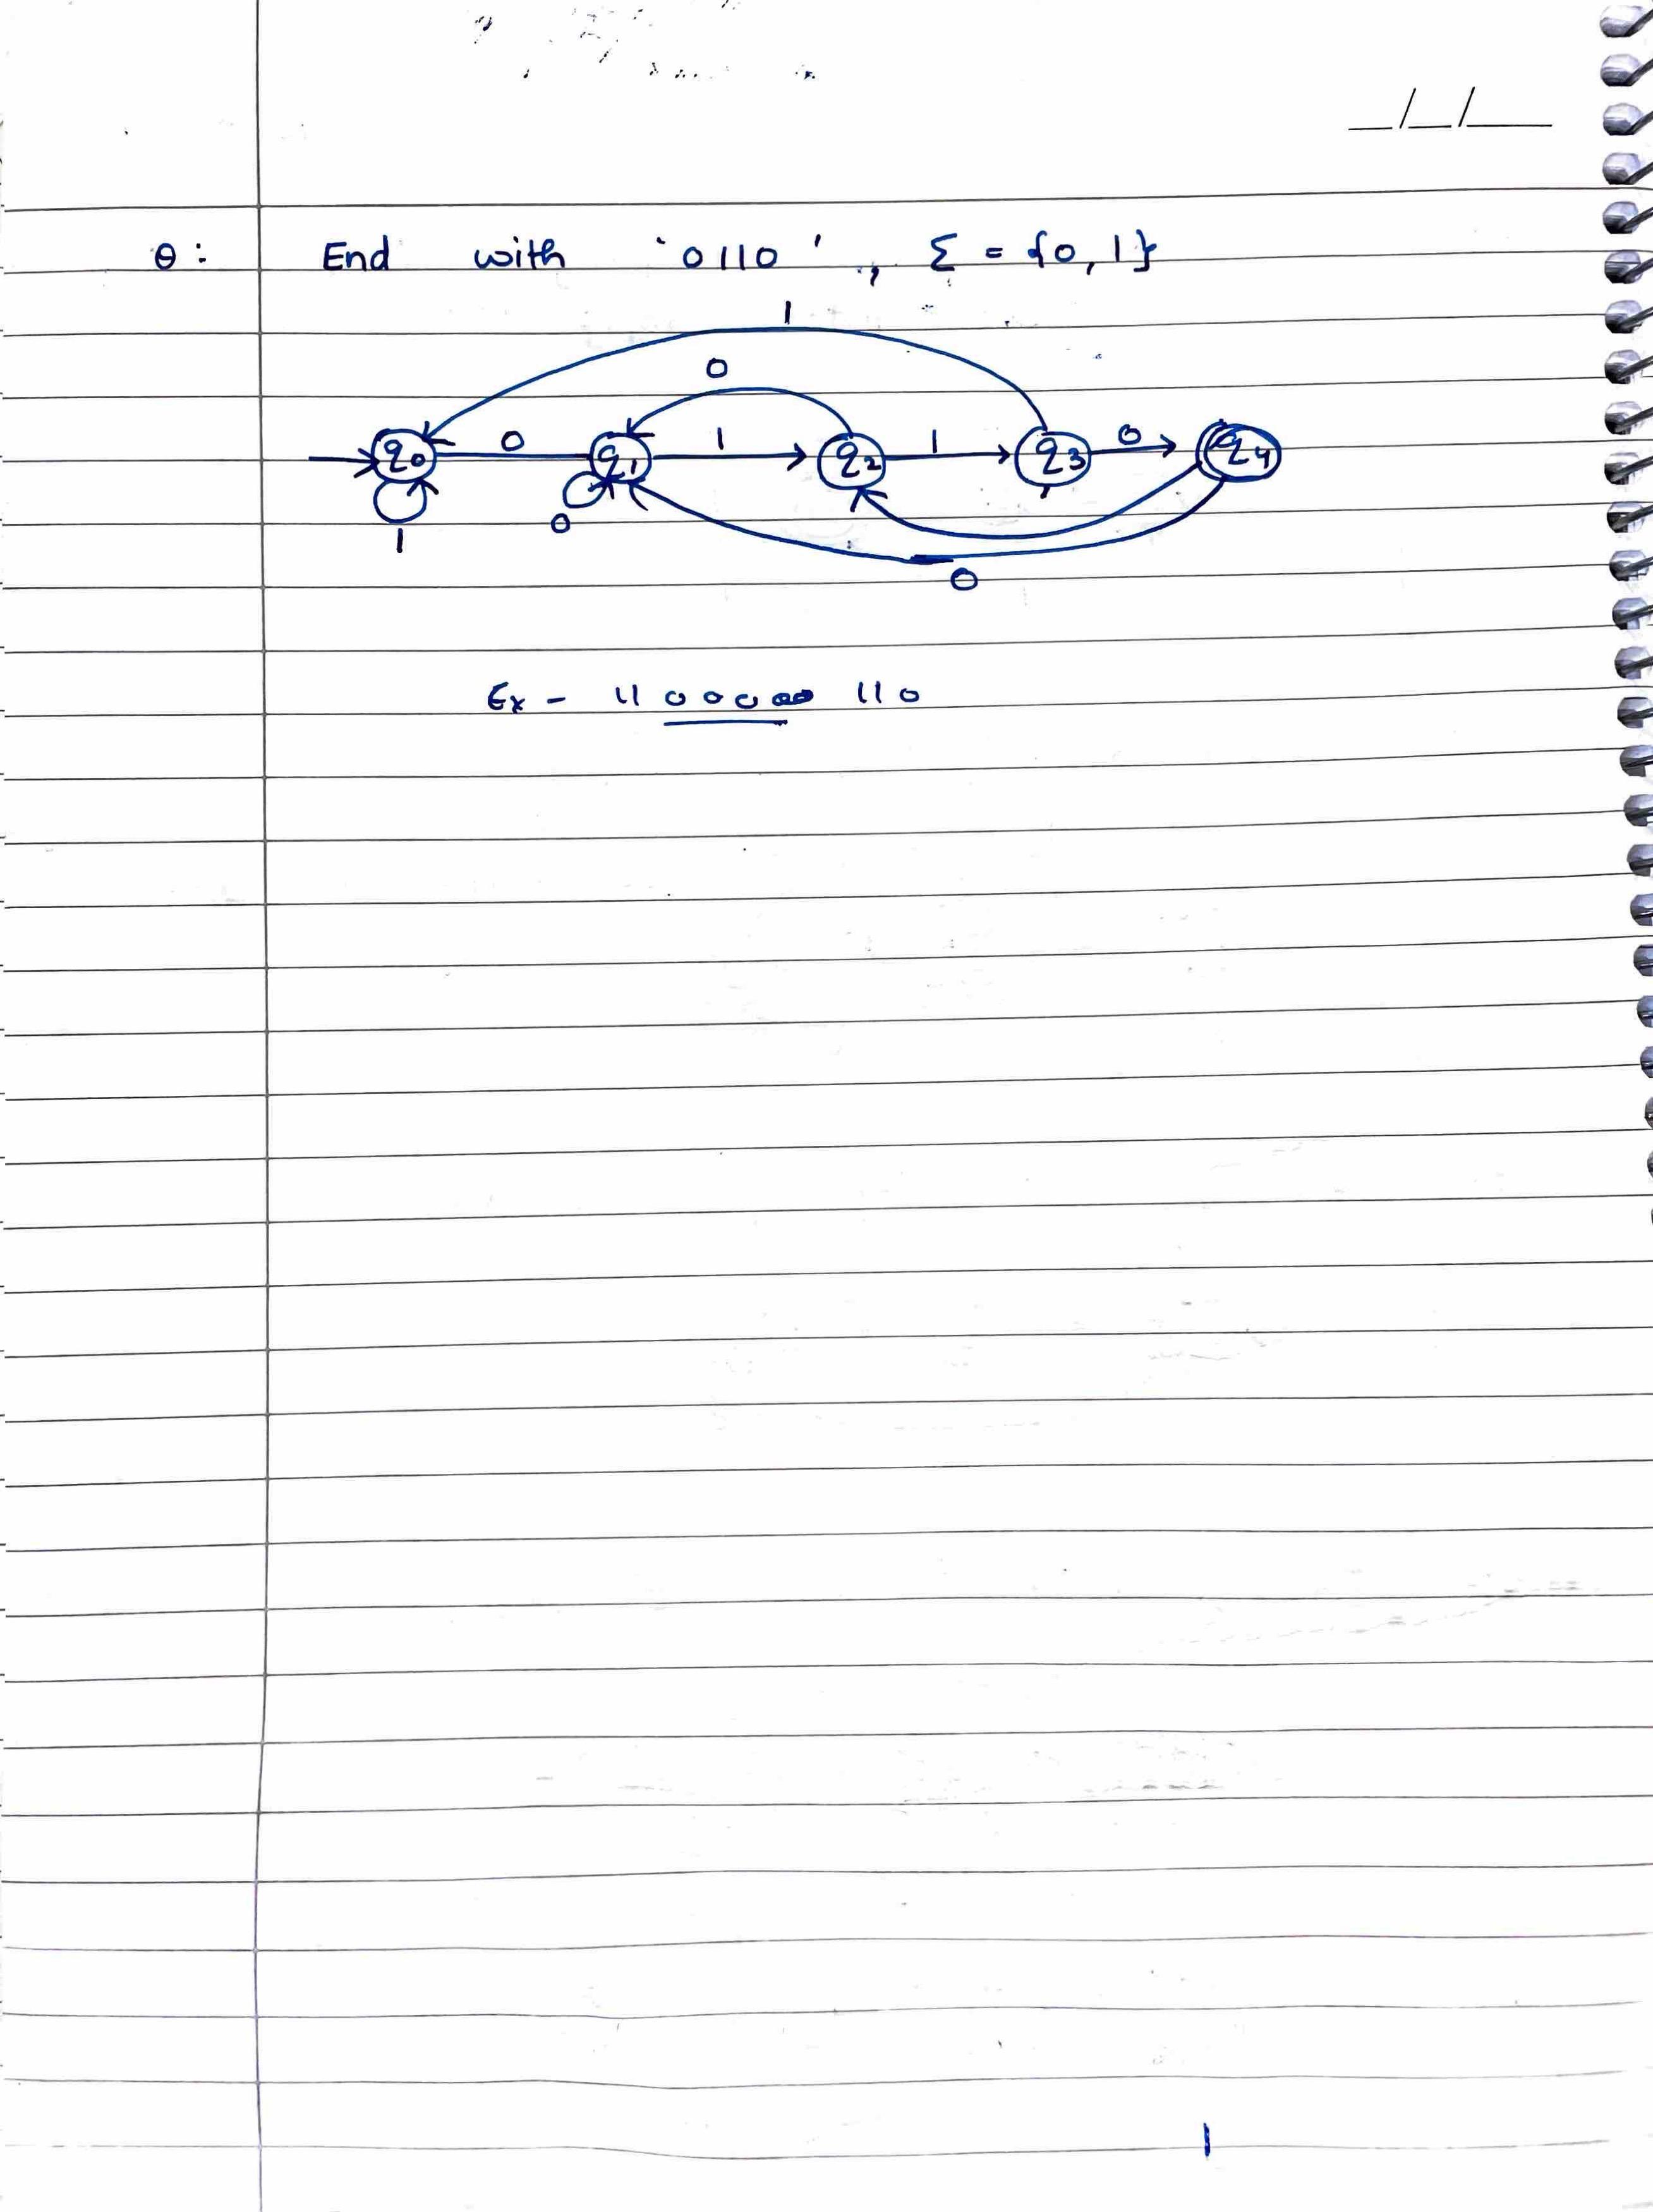 _/_/__
Q: End with '0110', Σ = {0,1}
1
0
q0 0 q1 1 q2 1 q3 0 q4
0
1
0
Ex - 11 00000 110
1